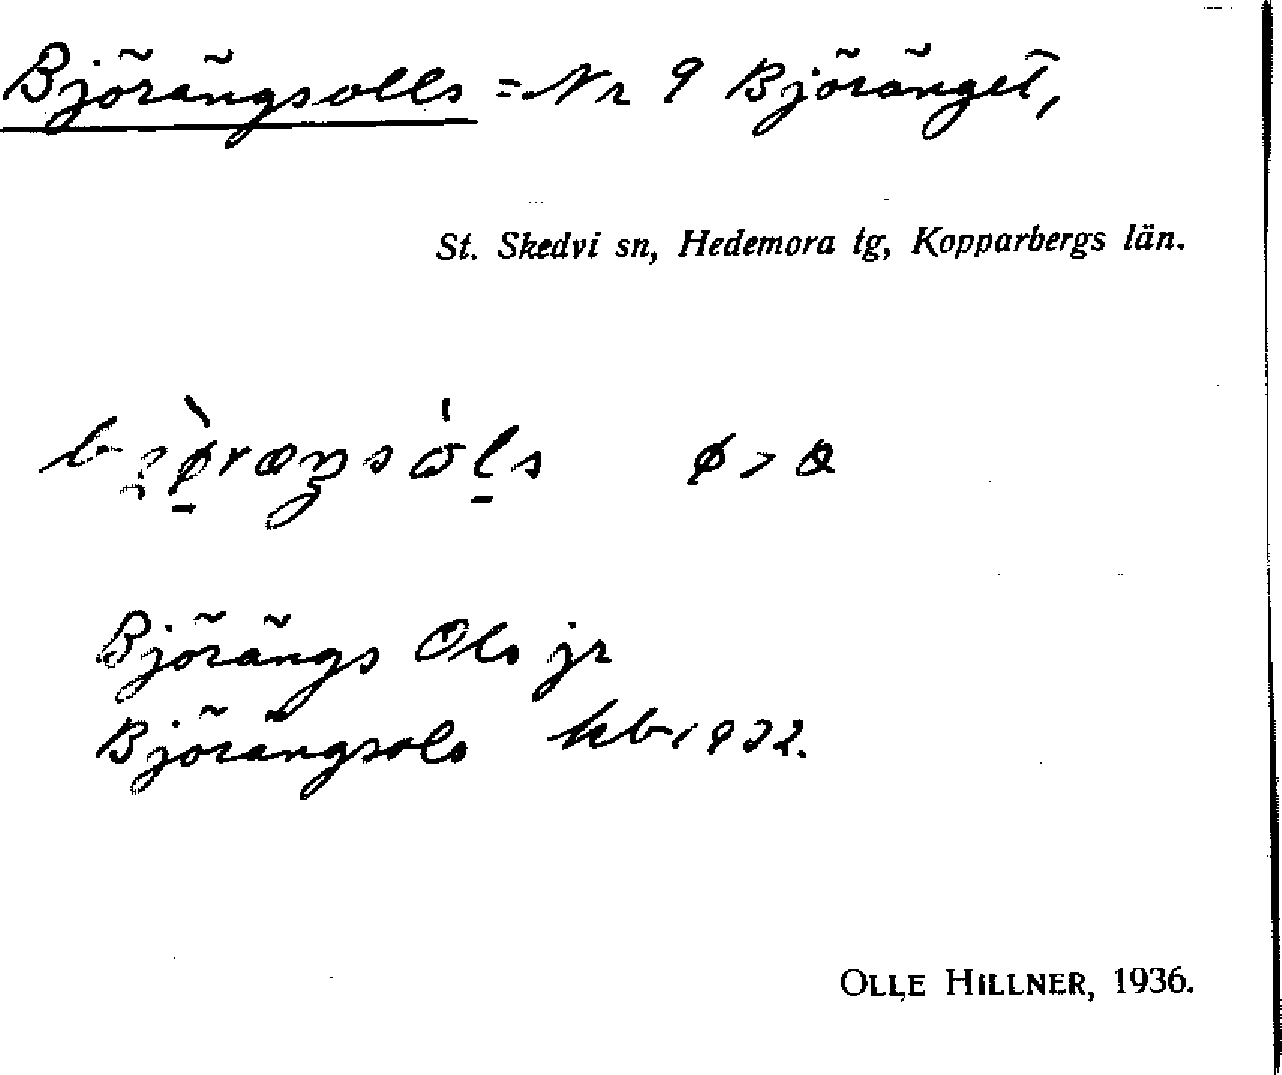 Björängsolls = Nr 9 Björänget,
St. Skedvi sn, Hedemora tg, Kopparbergs län.
ø > ꝏ
Björängs Ols jr
Björängsols kb 1922.
OLLE HILLNER, 1936.